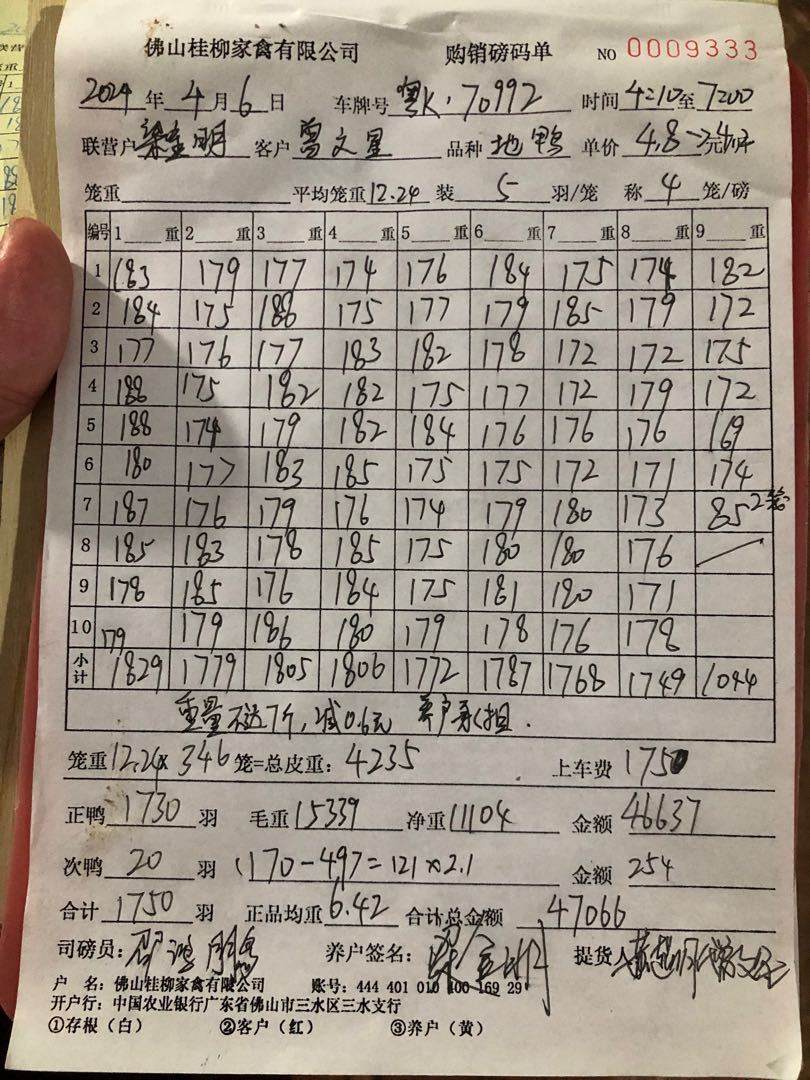 佛山桂柳家禽有限公司 购销磅码单 NO 0009333
2024年4月6日 车牌号 粤K·70992 时间 4:10至7:00
联营户 梁金明 客户 曾文星 品种 地鸭 单价 4.8
笼重 平均笼重12.24 装 5 羽/笼 称 4 笼/磅
编号 1 重 2 重 3 重 4 重 5 重 6 重 7 重 8 重 9 重
1 183 179 177 174 176 184 175 174 182
2 184 175 188 175 177 179 185 179 172
3 177 176 177 183 182 178 172 172 175
4 188 175 182 182 175 177 172 179 172
5 188 174 179 182 184 176 176 176 169
6 180 177 183 185 175 175 172 171 174
7 187 176 179 176 174 179 180 173 85 2笼
8 185 183 178 185 175 180 180 176
9 178 185 176 184 175 181 180 171
10 179 179 186 180 179 178 176 178
小计 1829 1779 1805 1806 1772 1787 1768 1749 1044
重量不达7斤,减0.6元 养户承担.
笼重12.24x 346笼=总皮重:4235 上车费 1750
正鸭 1730 羽 毛重 15339 净重 11104 金额 46637
次鸭 20 羽 (170-49)=121×2.1 金额 254
合计 1750 羽 正品均重 6.42 合计总金额 47066
司磅员: 养户签名:梁金明 提货人
户 名:佛山桂柳家禽有限公司 账号:444 401 010 400 169 29
开户行:中国农业银行广东省佛山市三水区三水支行
①存根(白) ②客户(红) ③养户(黄)